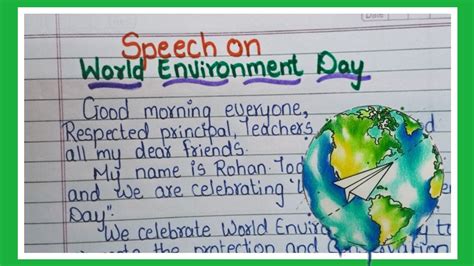 Speech on
World Environment Day
Good morning everyone,
Respected principal, Teachers
all my dear friends.
My name is Rohan.
and we are celebrating
Day".
We celebrate World
the protection and